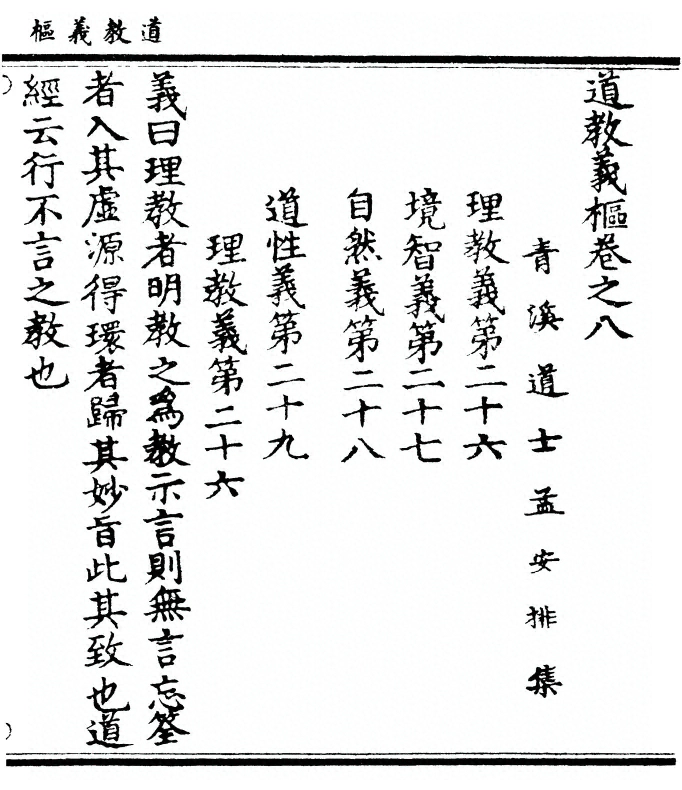 道教義樞
道教義樞卷之八
青溪道士孟安排集
理教義第二十六
境智義第二十七
自然義第二十八
道性義第二十九
理教義第二十六
義曰理教者明教之為教示言則無言忘筌
者入其虛源得環者歸其妙旨此其致也道
經云行不言之教也